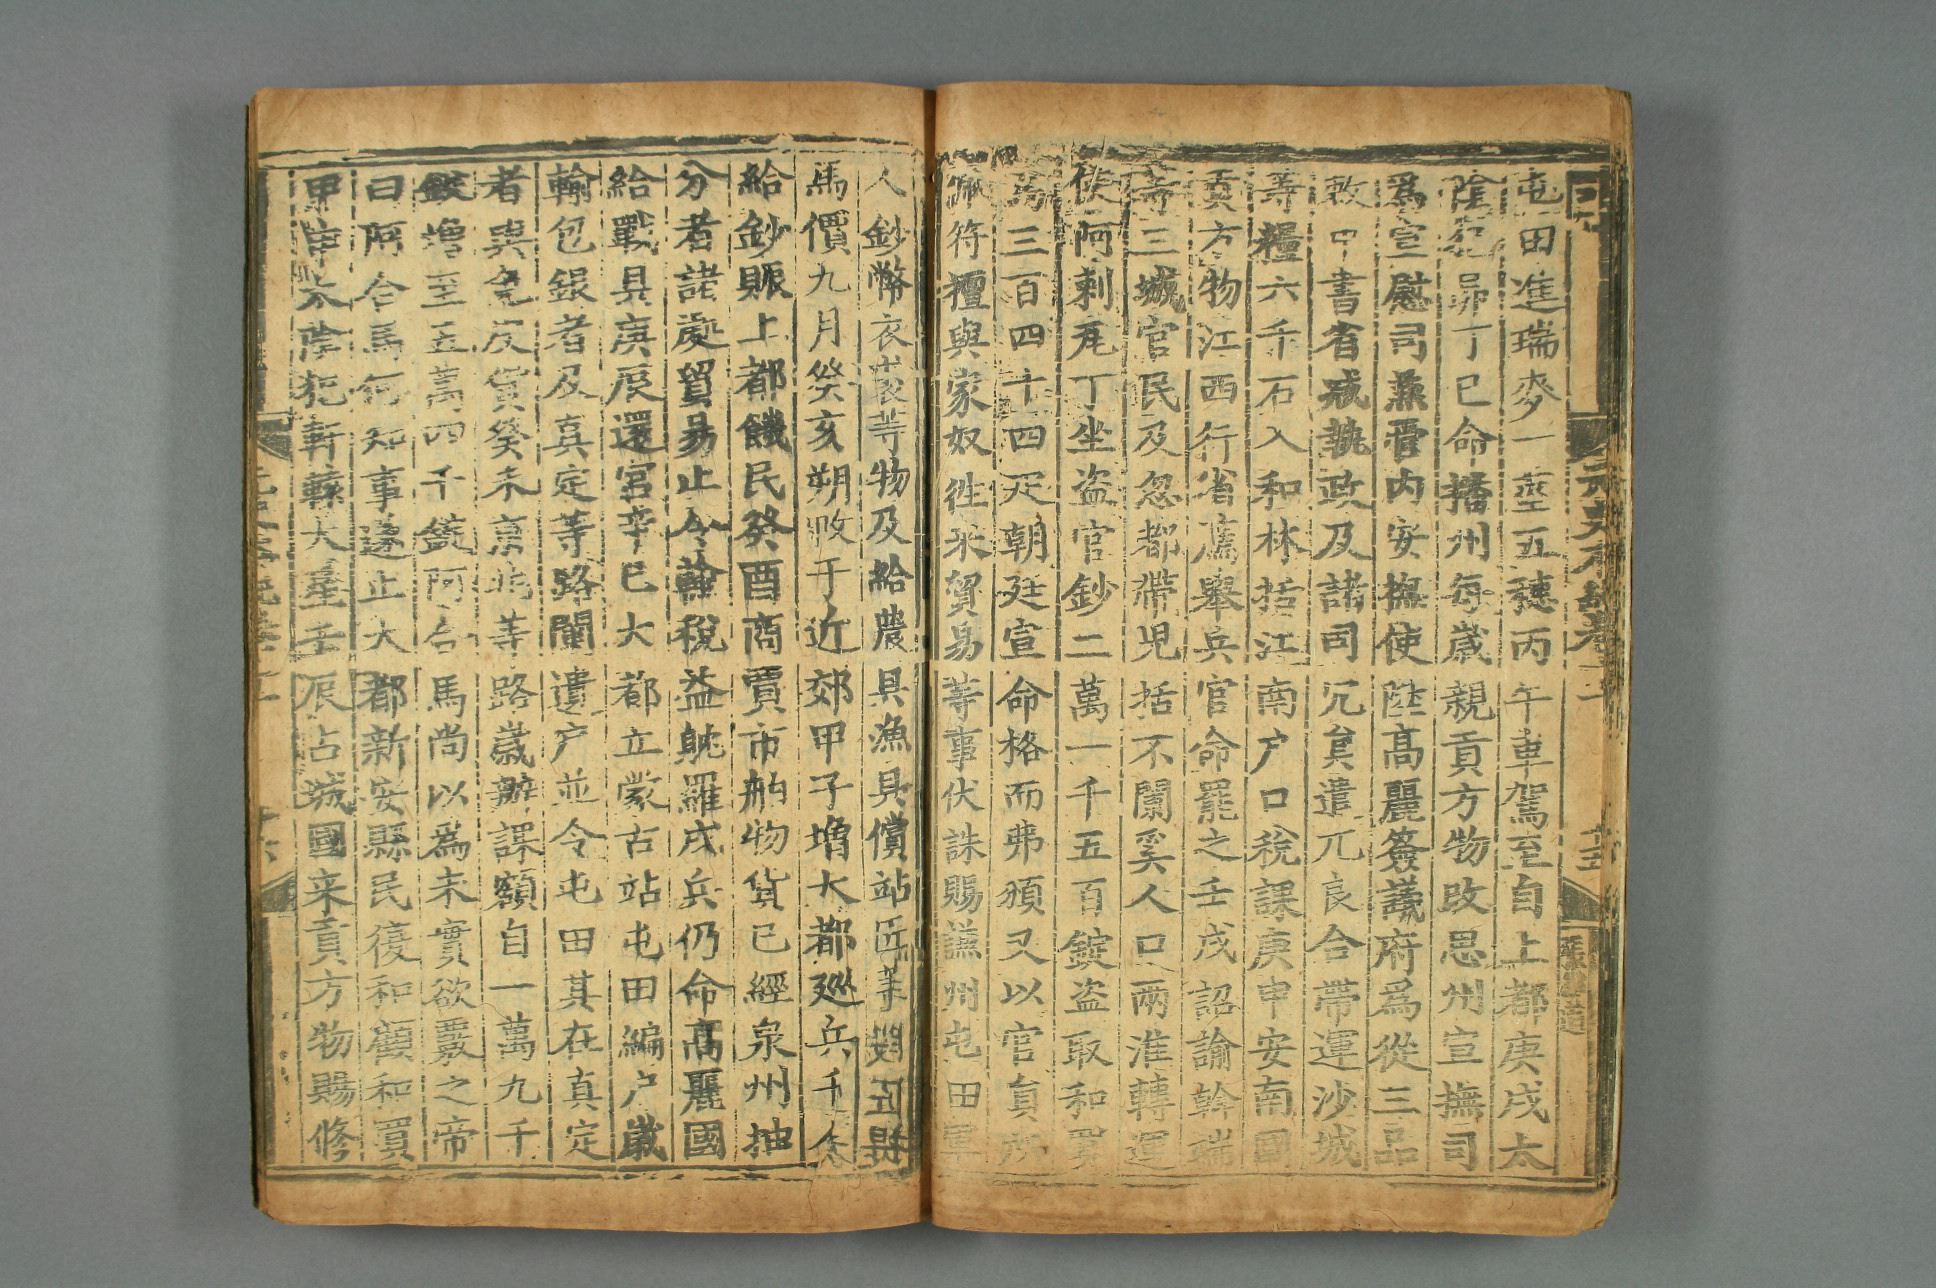 屯田進瑞麥一莖五穗丙午車駕至自上都庚戌太
陰犯昴丁巳命播州每歲親貢方物改思州宣撫司
爲宣慰司兼管內安撫使陞高麗簽議府爲從三品
敕中書省減執政及諸司冗員遣兀良合帶運沙城
等糧六千石入和林括江南户口稅課庚申安南國
貢方物江西行省薦舉兵官命罷之壬戌詔諭斡端
等三城官民及忽都帶児括不闌奚人口兩淮轉運
使阿剌瓦丁坐盗官鈔二萬一千五百錠盗取和買
馬三百四十四疋朝廷宣命格而弗頒又以官員所
佩符擅與家奴徃来貿易等事伏誅賜諸州屯田軍
人鈔幣衣裘等物及給農具漁具償站匠等
馬價九月癸亥朔畋于近郊甲子增大都廵兵千人
給鈔賑上都饑民癸酉商賈市舶物貨已經泉州抽
分者諸處貿易止令輸稅益躭羅戍兵仍命高麗國
給戰具庚辰還宮辛巳大都立蒙古站屯田編户歲
輸包銀者及真定等路闌遺户並令屯田其在真定
者與免皮貨癸未京兆等路歲辦課額自一萬九千
錠增至五萬四千錠阿合馬尚以爲未實欲覈之帝
曰阿合馬何知事遂止大都新安縣民復和顧和買
甲申太陰犯軒轅大星壬辰占城國来貢方物賜修
元史本紀卷十一